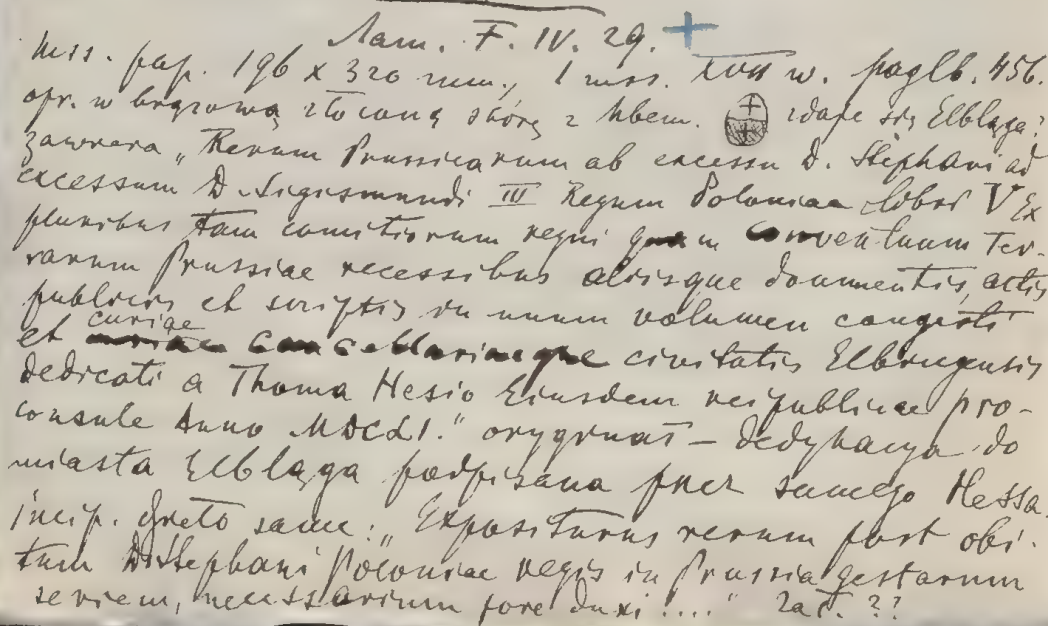 Лат. F. IV. 29. +
Mss. pap. 196 x 320 mm., 1 mss. XVII w. pag lb. 456.
opr. w brązową złoconą skórę z hbem. zdaje się Elbląga?
zawiera „Rerum Prussicarum ab excessu D. Stephani ad
excessum D. Sigismundi III Regum Poloniae libri V Ex
pluribus tam comitiorum regni quam conventuum Ter-
rarum Prussiae recessibus aliisque documentis, actis
publicis et scriptis in unum volumen congesti
et curiae cancellariaeque civitatis Elbingensis
dedicati a Thoma Hesio Eiusdem reipublicae pro-
consule Anno MDCLI." oryginał – dedykacya do
miasta Elbląga podpisana przez samego Hessa.
incip. dzieło same: „Expositurus rerum post obi-
tum D. Stephani Poloniae regis in Prussia gestarum
seriem, necessarium fore duxi ...." zač. ??